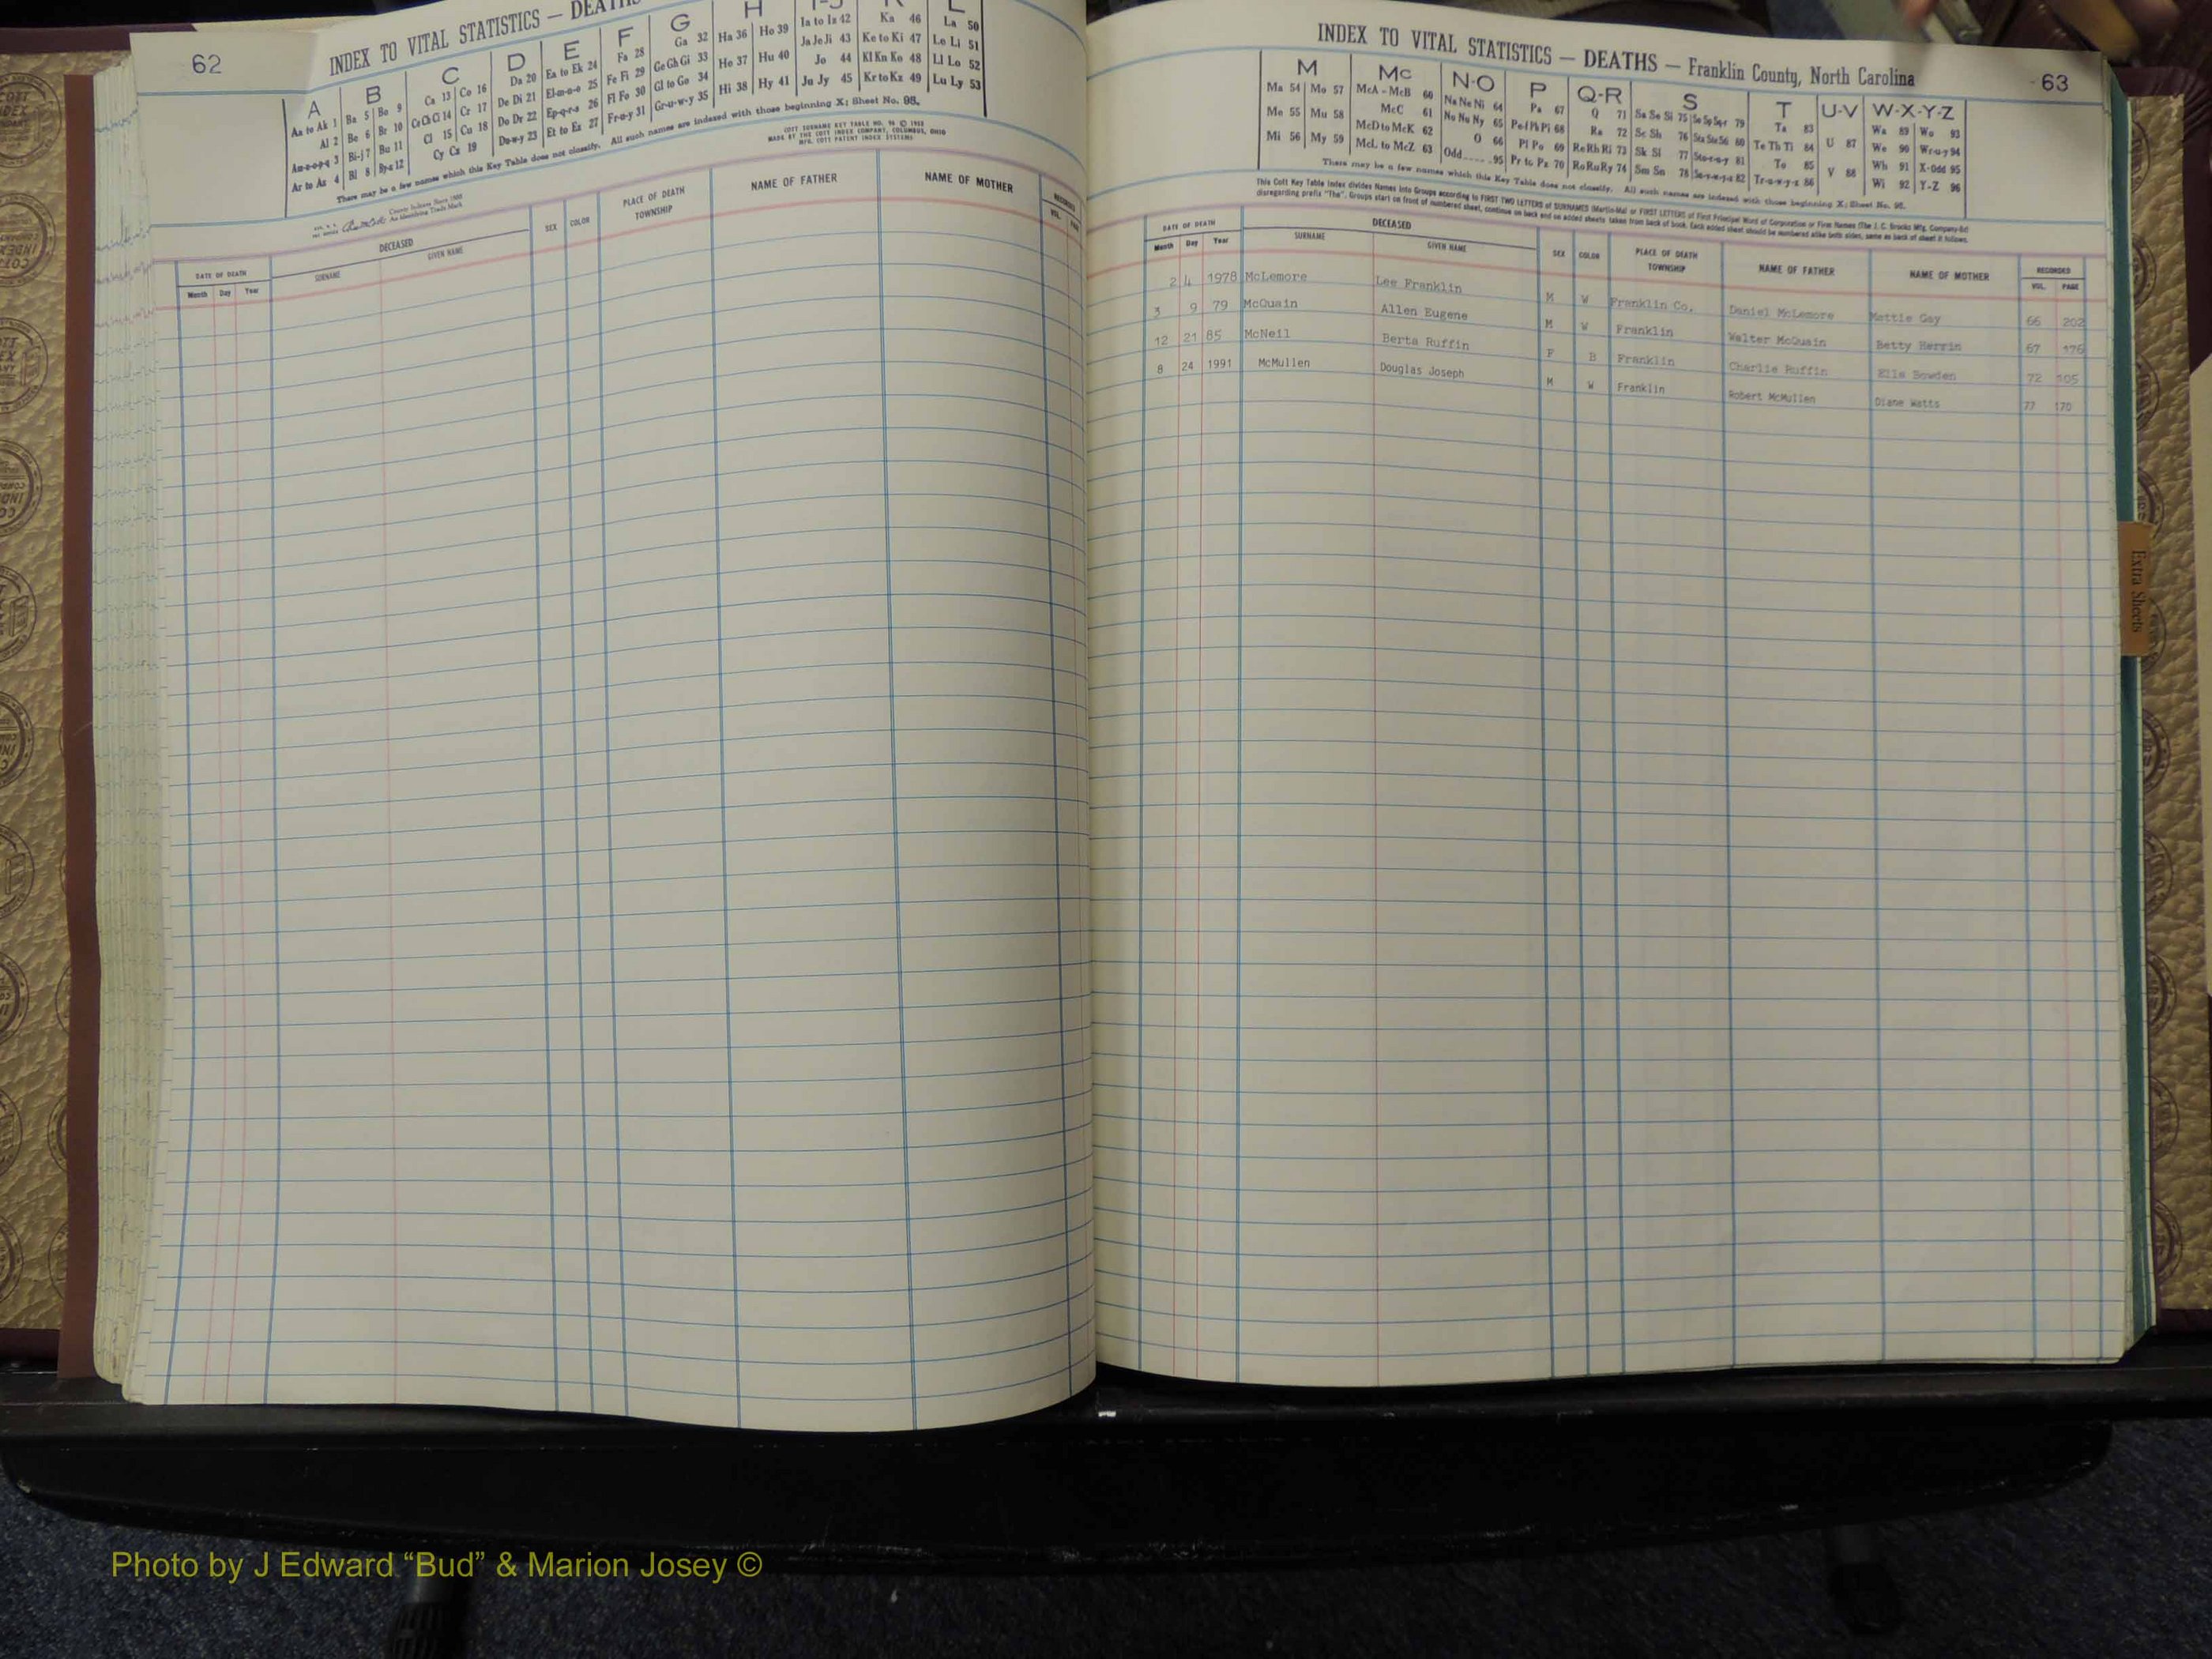 62
INDEX TO VITAL STATISTICS — DEATHS
A B C D E F G H I-J K L
Aa to Ak 1 Ba 5 Bo 9 Ca 13 Co 16 Da 20 Ea to Ek 24 Fa 28 Ga 32 Ha 36 Ho 39 Ia to Iz 42 Ka 46 La 50
Al 2 Be 6 Br 10 Ce Ch Ci 14 Cr 17 De Di 21 El-m-n-o 25 Fe Fi 29 Ge Gh Gi 33 He 37 Hu 40 Ja Je Ji 43 Ke to Ki 47 Le Li 51
Am-n-o-p-q 3 Bi-j 7 Bu 11 Cl 15 Cu 18 Do Dr 22 Ep-q-r-s 26 Fl Fo 30 Gl to Go 34 Hi 38 Hy 41 Jo 44 Kl Kn Ko 48 Ll Lo 52
Ar to Az 4 Bl 8 By-z 12 Cy Cz 19 Du-w-y 23 Et to Ez 27 Fr-u-y 31 Gr-u-w-y 35 Ju Jy 45 Kr to Kz 49 Lu Ly 53
There may be a few names which this Key Table does not classify. All such names are indexed with those beginning X; Sheet No. 95.
COTT SURNAME KEY TABLE NO. 96 ©
MADE BY THE COTT INDEX COMPANY, COLUMBUS, OHIO
MFG. COTT PATENT INDEX SYSTEMS
County Indexes Since 1888
An Identifying Trade Mark
DATE OF DEATH DECEASED SEX COLOR PLACE OF DEATH TOWNSHIP NAME OF FATHER NAME OF MOTHER RECORDED
Month Day Year SURNAME GIVEN NAME VOL. PAGE
INDEX TO VITAL STATISTICS — DEATHS — Franklin County, North Carolina
63
M Mc N-O P Q-R S T U-V W-X-Y-Z
Ma 54 Mo 57 McA - McB 60 Na Ne Ni 64 Pa 67 Q 71 Sa Se Si 75 So Sp Sq-r 79 Ta 83 U 87 Wa 89 Wo 93
Me 55 Mu 58 McC 61 No Nu Ny 65 Pe-f Ph Pi 68 Ra 72 Sc Sh 76 Sta Ste 80 Te Th Ti 84 V 88 We 90 Wr-u-y 94
Mi 56 My 59 McD to McK 62 O 66 Pl Po 69 Re Rh Ri 73 Sk Sl 77 Sto-r-u-y 81 To 85 Wh 91 X-Odd 95
McL to McZ 63 Odd 95 Pr to Pz 70 Ro Ru Ry 74 Sm Sn 78 Su-v-w-y-z 82 Tr-u-w-y-z 86 Wi 92 Y-Z 96
There may be a few names which this Key Table does not classify. All such names are indexed with those beginning X; Sheet No. 95.
This Cott Key Table Index divides Names into Groups according to FIRST TWO LETTERS of SURNAMES (Martin-Ma) or FIRST LETTERS of First Principal Word of Corporation or Firm Names (The J. C. Brooks Mfg. Company-Br)
disregarding prefix "The". Groups start on front of numbered sheet, continue on back and on added sheets taken from back of book. Each added sheet should be numbered alike both sides, same as back of sheet it follows.
DATE OF DEATH DECEASED SEX COLOR PLACE OF DEATH TOWNSHIP NAME OF FATHER NAME OF MOTHER RECORDED
Month Day Year SURNAME GIVEN NAME VOL. PAGE
2 4 1978 McLemore Lee Franklin M W Franklin Co. Daniel McLemore Mattie Gay 66 202
3 9 79 McQuain Allen Eugene M W Franklin Walter McQuain Betty Herrin 67 176
12 21 85 McNeil Berta Ruffin F B Franklin Charlie Ruffin Ella Bowden 72 505
8 24 1991 McMullen Douglas Joseph M W Franklin Robert McMullen Diane Watts 77 170
Extra Sheets
Photo by J Edward “Bud” & Marion Josey ©